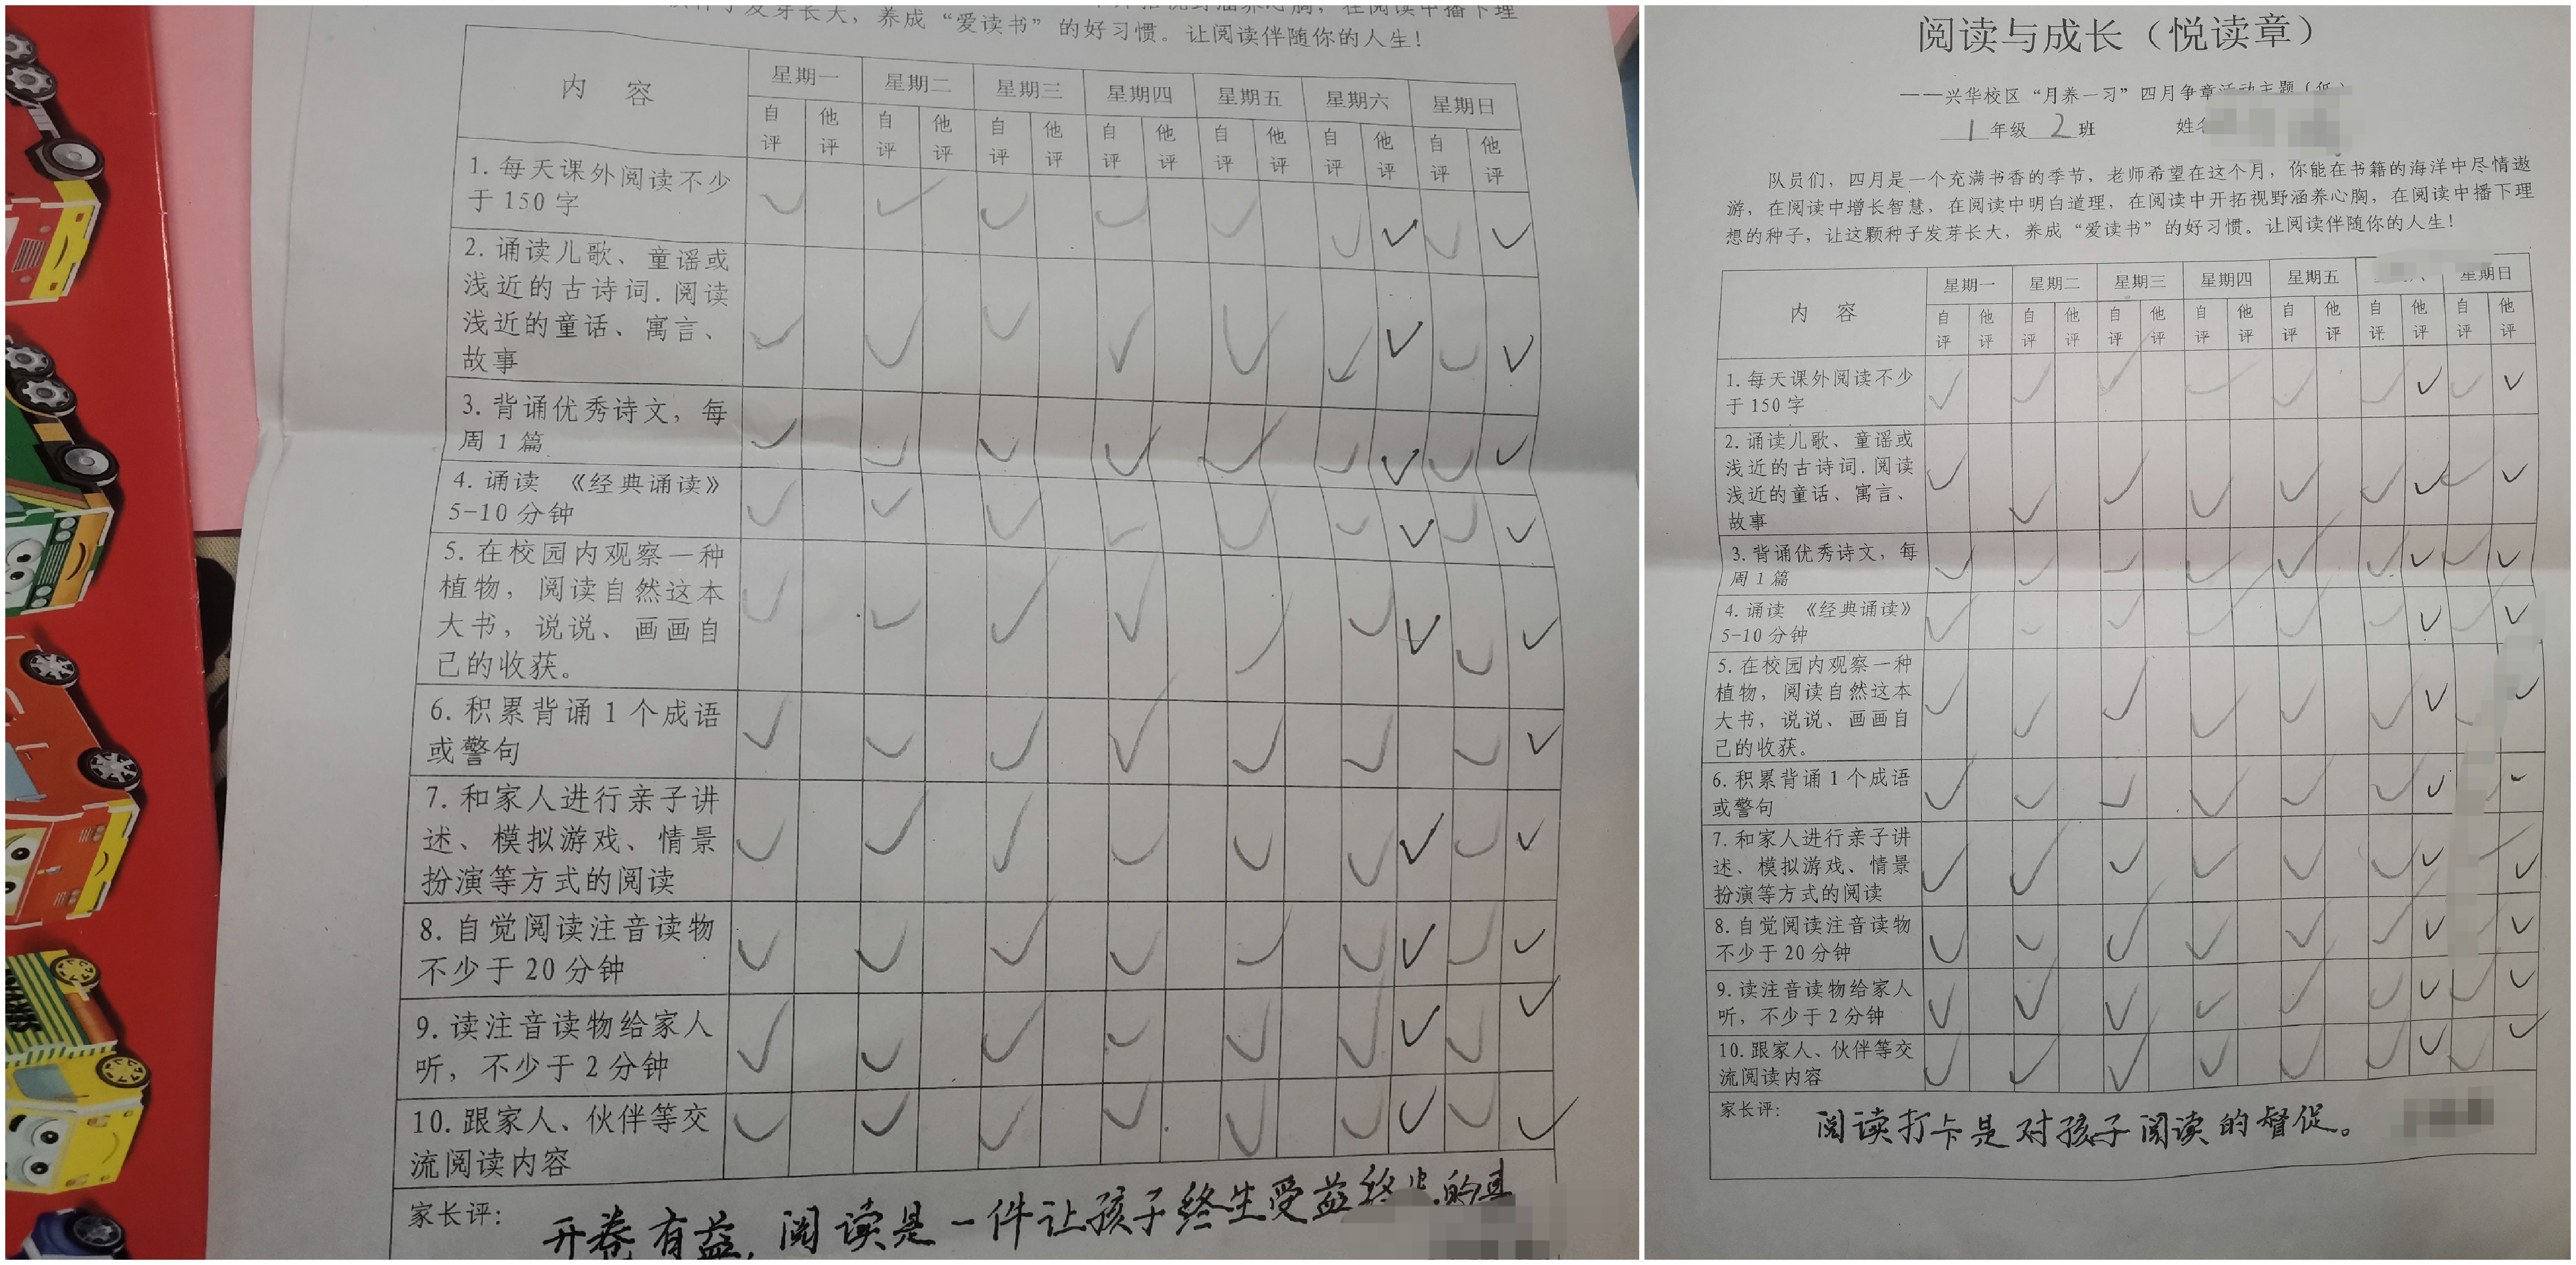 养成“爱读书”的好习惯。让阅读伴随你的人生！
内 容 星期一 星期二 星期三 星期四 星期五 星期六 星期日
自评 他评 自评 他评 自评 他评 自评 他评 自评 他评 自评 他评 自评 他评
1. 每天课外阅读不少
于 150 字
2. 诵读儿歌、童谣或
浅近的古诗词. 阅读
浅近的童话、寓言、
故事
3. 背诵优秀诗文，每
周 1 篇
4. 诵读 《经典诵读》
5-10 分钟
5. 在校园内观察一种
植物，阅读自然这本
大书，说说、画画自
己的收获。
6. 积累背诵 1 个成语
或警句
7. 和家人进行亲子讲
述、模拟游戏、情景
扮演等方式的阅读
8. 自觉阅读注音读物
不少于 20 分钟
9. 读注音读物给家人
听，不少于 2 分钟
10. 跟家人、伙伴等交
流阅读内容
家长评： 开卷有益，阅读是一件让孩子终生受益
阅读与成长（悦读章）
——兴华校区“月养一习”四月争章活动主题
1 年级 2 班 姓名
队员们，四月是一个充满书香的季节，老师希望在这个月，你能在书籍的海洋中尽情遨
游，在阅读中增长智慧，在阅读中明白道理，在阅读中开拓视野涵养心胸，在阅读中播下理
想的种子，让这颗种子发芽长大，养成“爱读书”的好习惯。让阅读伴随你的人生！
内 容 星期一 星期二 星期三 星期四 星期五 星期日
自评 他评 自评 他评 自评 他评 自评 他评 自评 他评 自评 他评 自评 他评
1. 每天课外阅读不少
于 150 字
2. 诵读儿歌、童谣或
浅近的古诗词. 阅读
浅近的童话、寓言、
故事
3. 背诵优秀诗文，每
周 1 篇
4. 诵读 《经典诵读》
5-10 分钟
5. 在校园内观察一种
植物，阅读自然这本
大书，说说、画画自
己的收获。
6. 积累背诵 1 个成语
或警句
7. 和家人进行亲子讲
述、模拟游戏、情景
扮演等方式的阅读
8. 自觉阅读注音读物
不少于 20 分钟
9. 读注音读物给家人
听，不少于 2 分钟
10. 跟家人、伙伴等交
流阅读内容
家长评： 阅读打卡是对孩子阅读的督促。